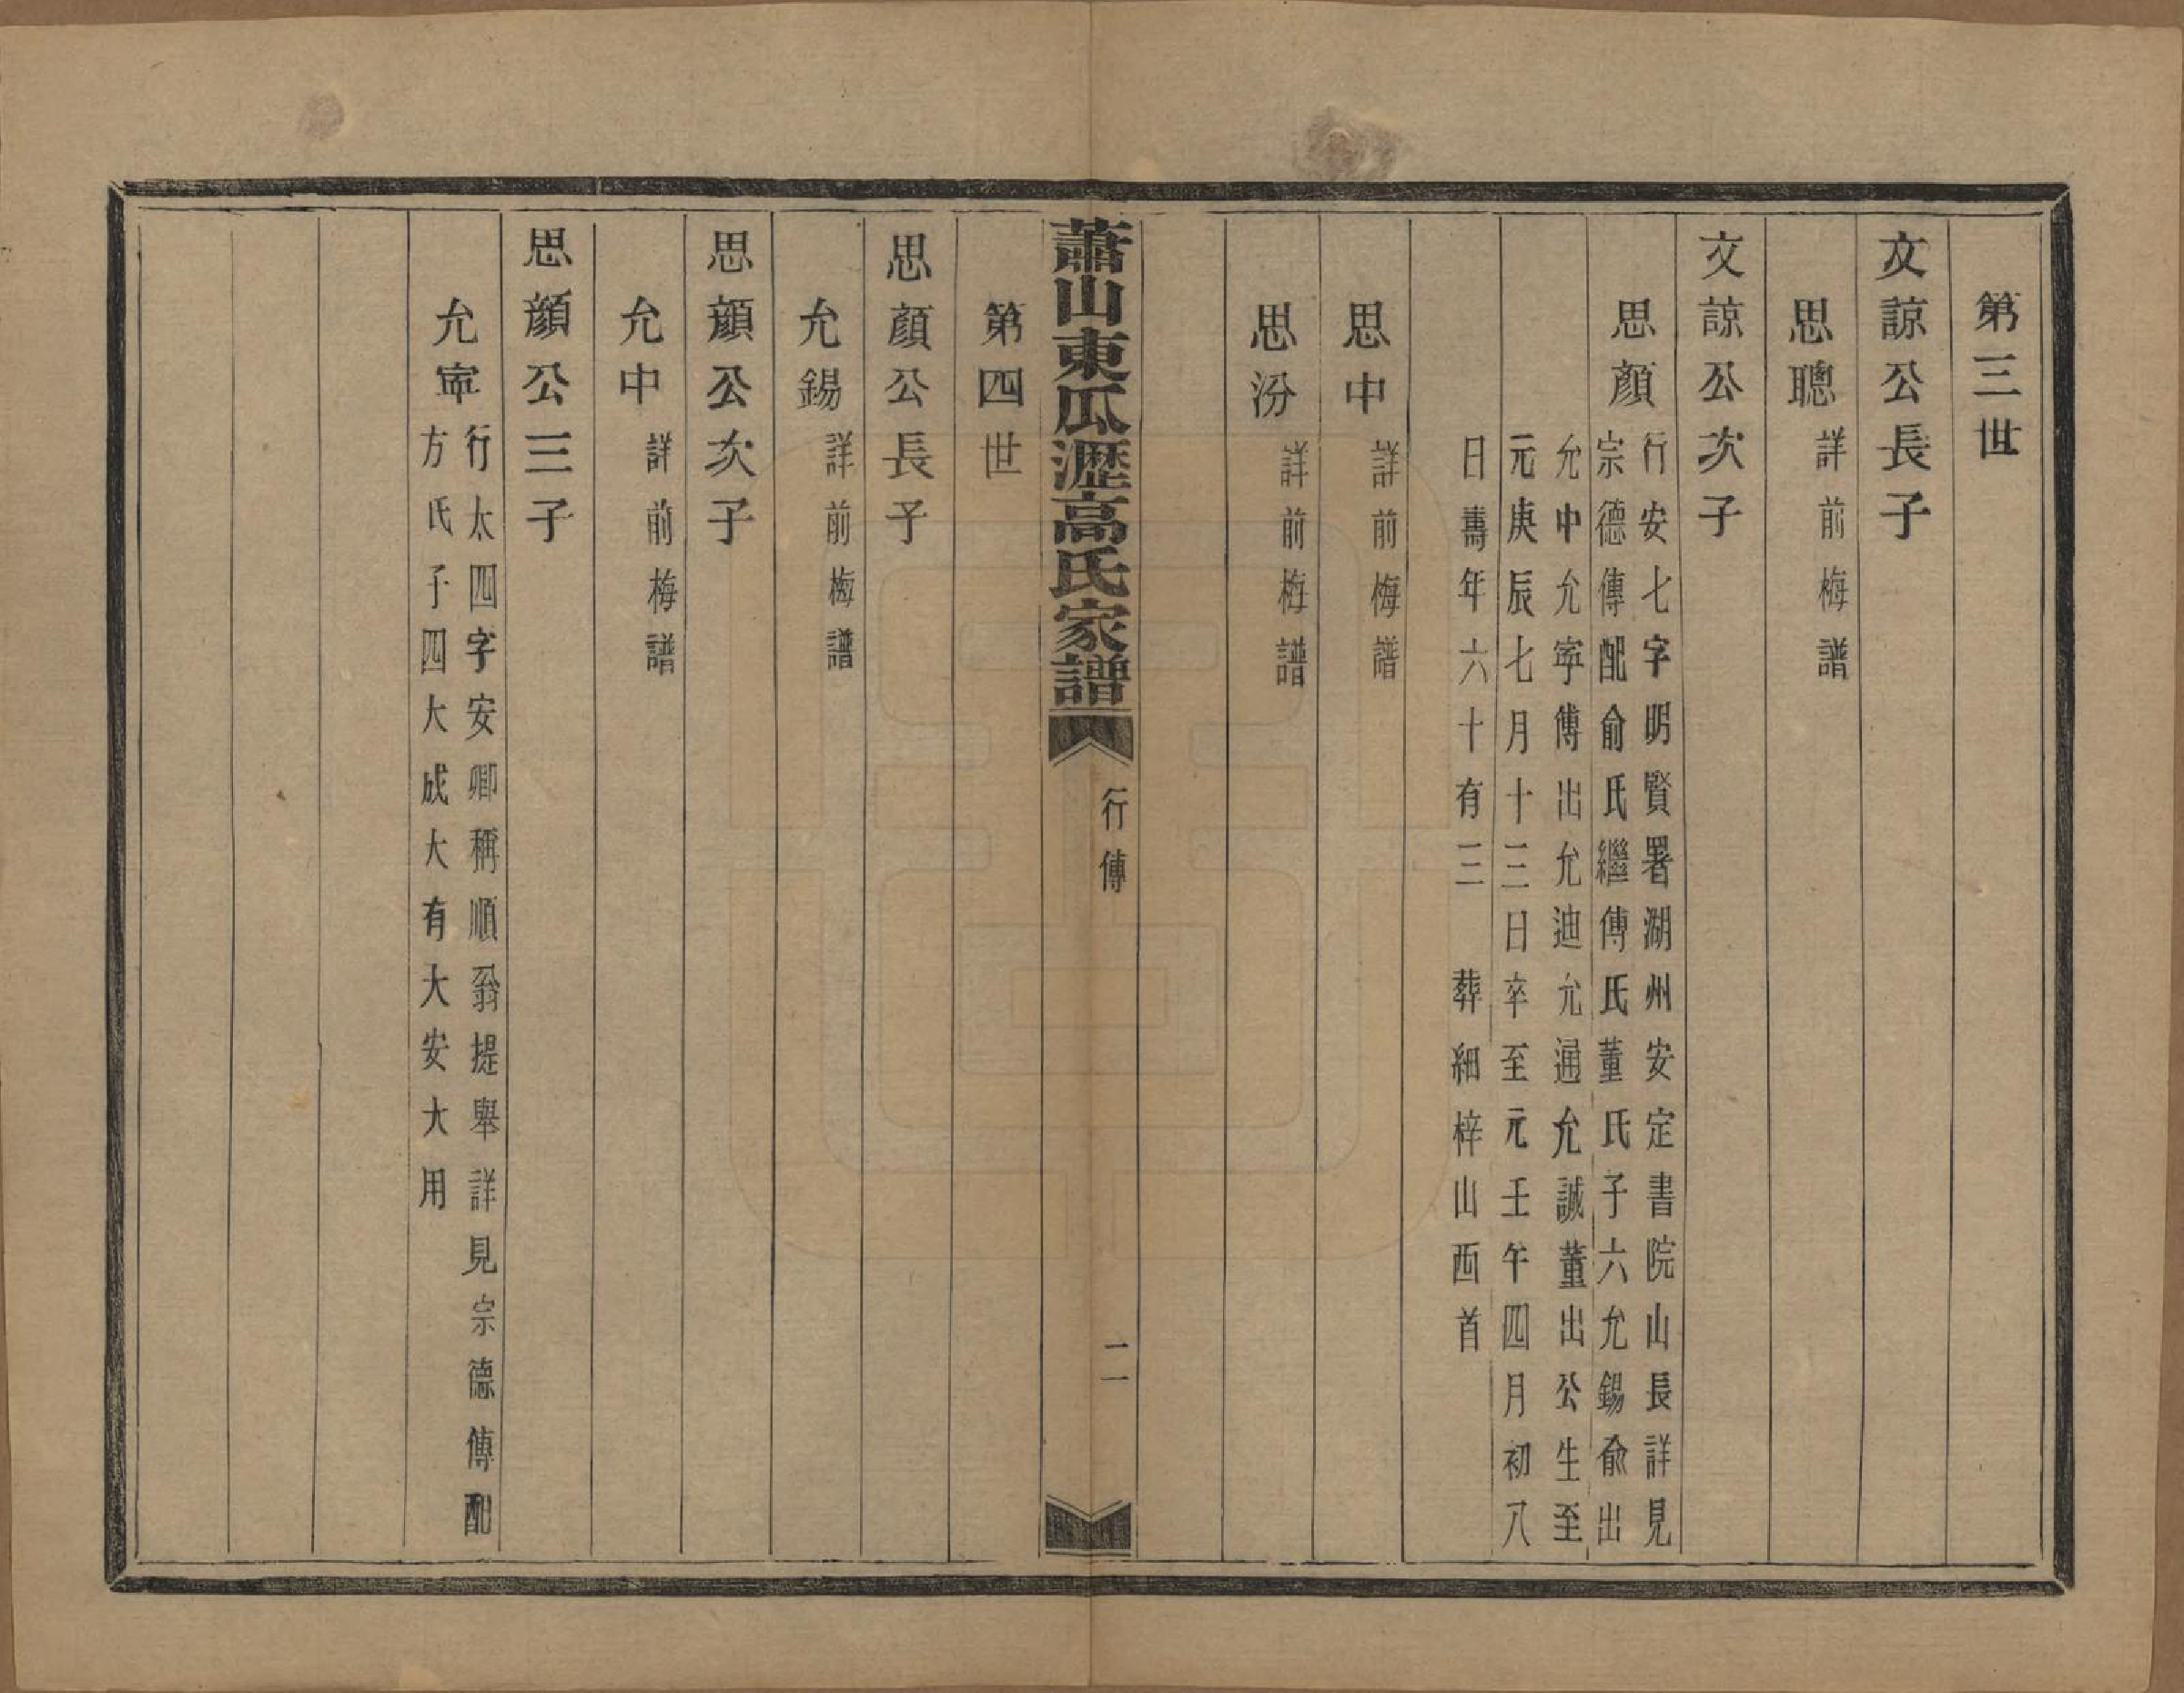 第三世
文諒公長子
思聰 詳前梅譜
文諒公次子
思顏 行安七字明賢署湖州安定書院山長詳見
宗德傳配俞氏繼傅氏董氏子六允錫俞出
允中允寧傅出允迪允通允誠董出公生至
元庚辰七月十三日卒至元壬午四月初八
日壽年六十有三 葬細梓山西首
思中 詳前梅譜
思汾 詳前梅譜
蕭山東瓜瀝高氏家譜 行傳 二
第四世
思顏公長子
允錫 詳前梅譜
思顏公次子
允中 詳前梅譜
思顏公三子
允寧 行太四字安卿稱順翁提舉詳見宗德傳配
方氏子四大成大有大安大用